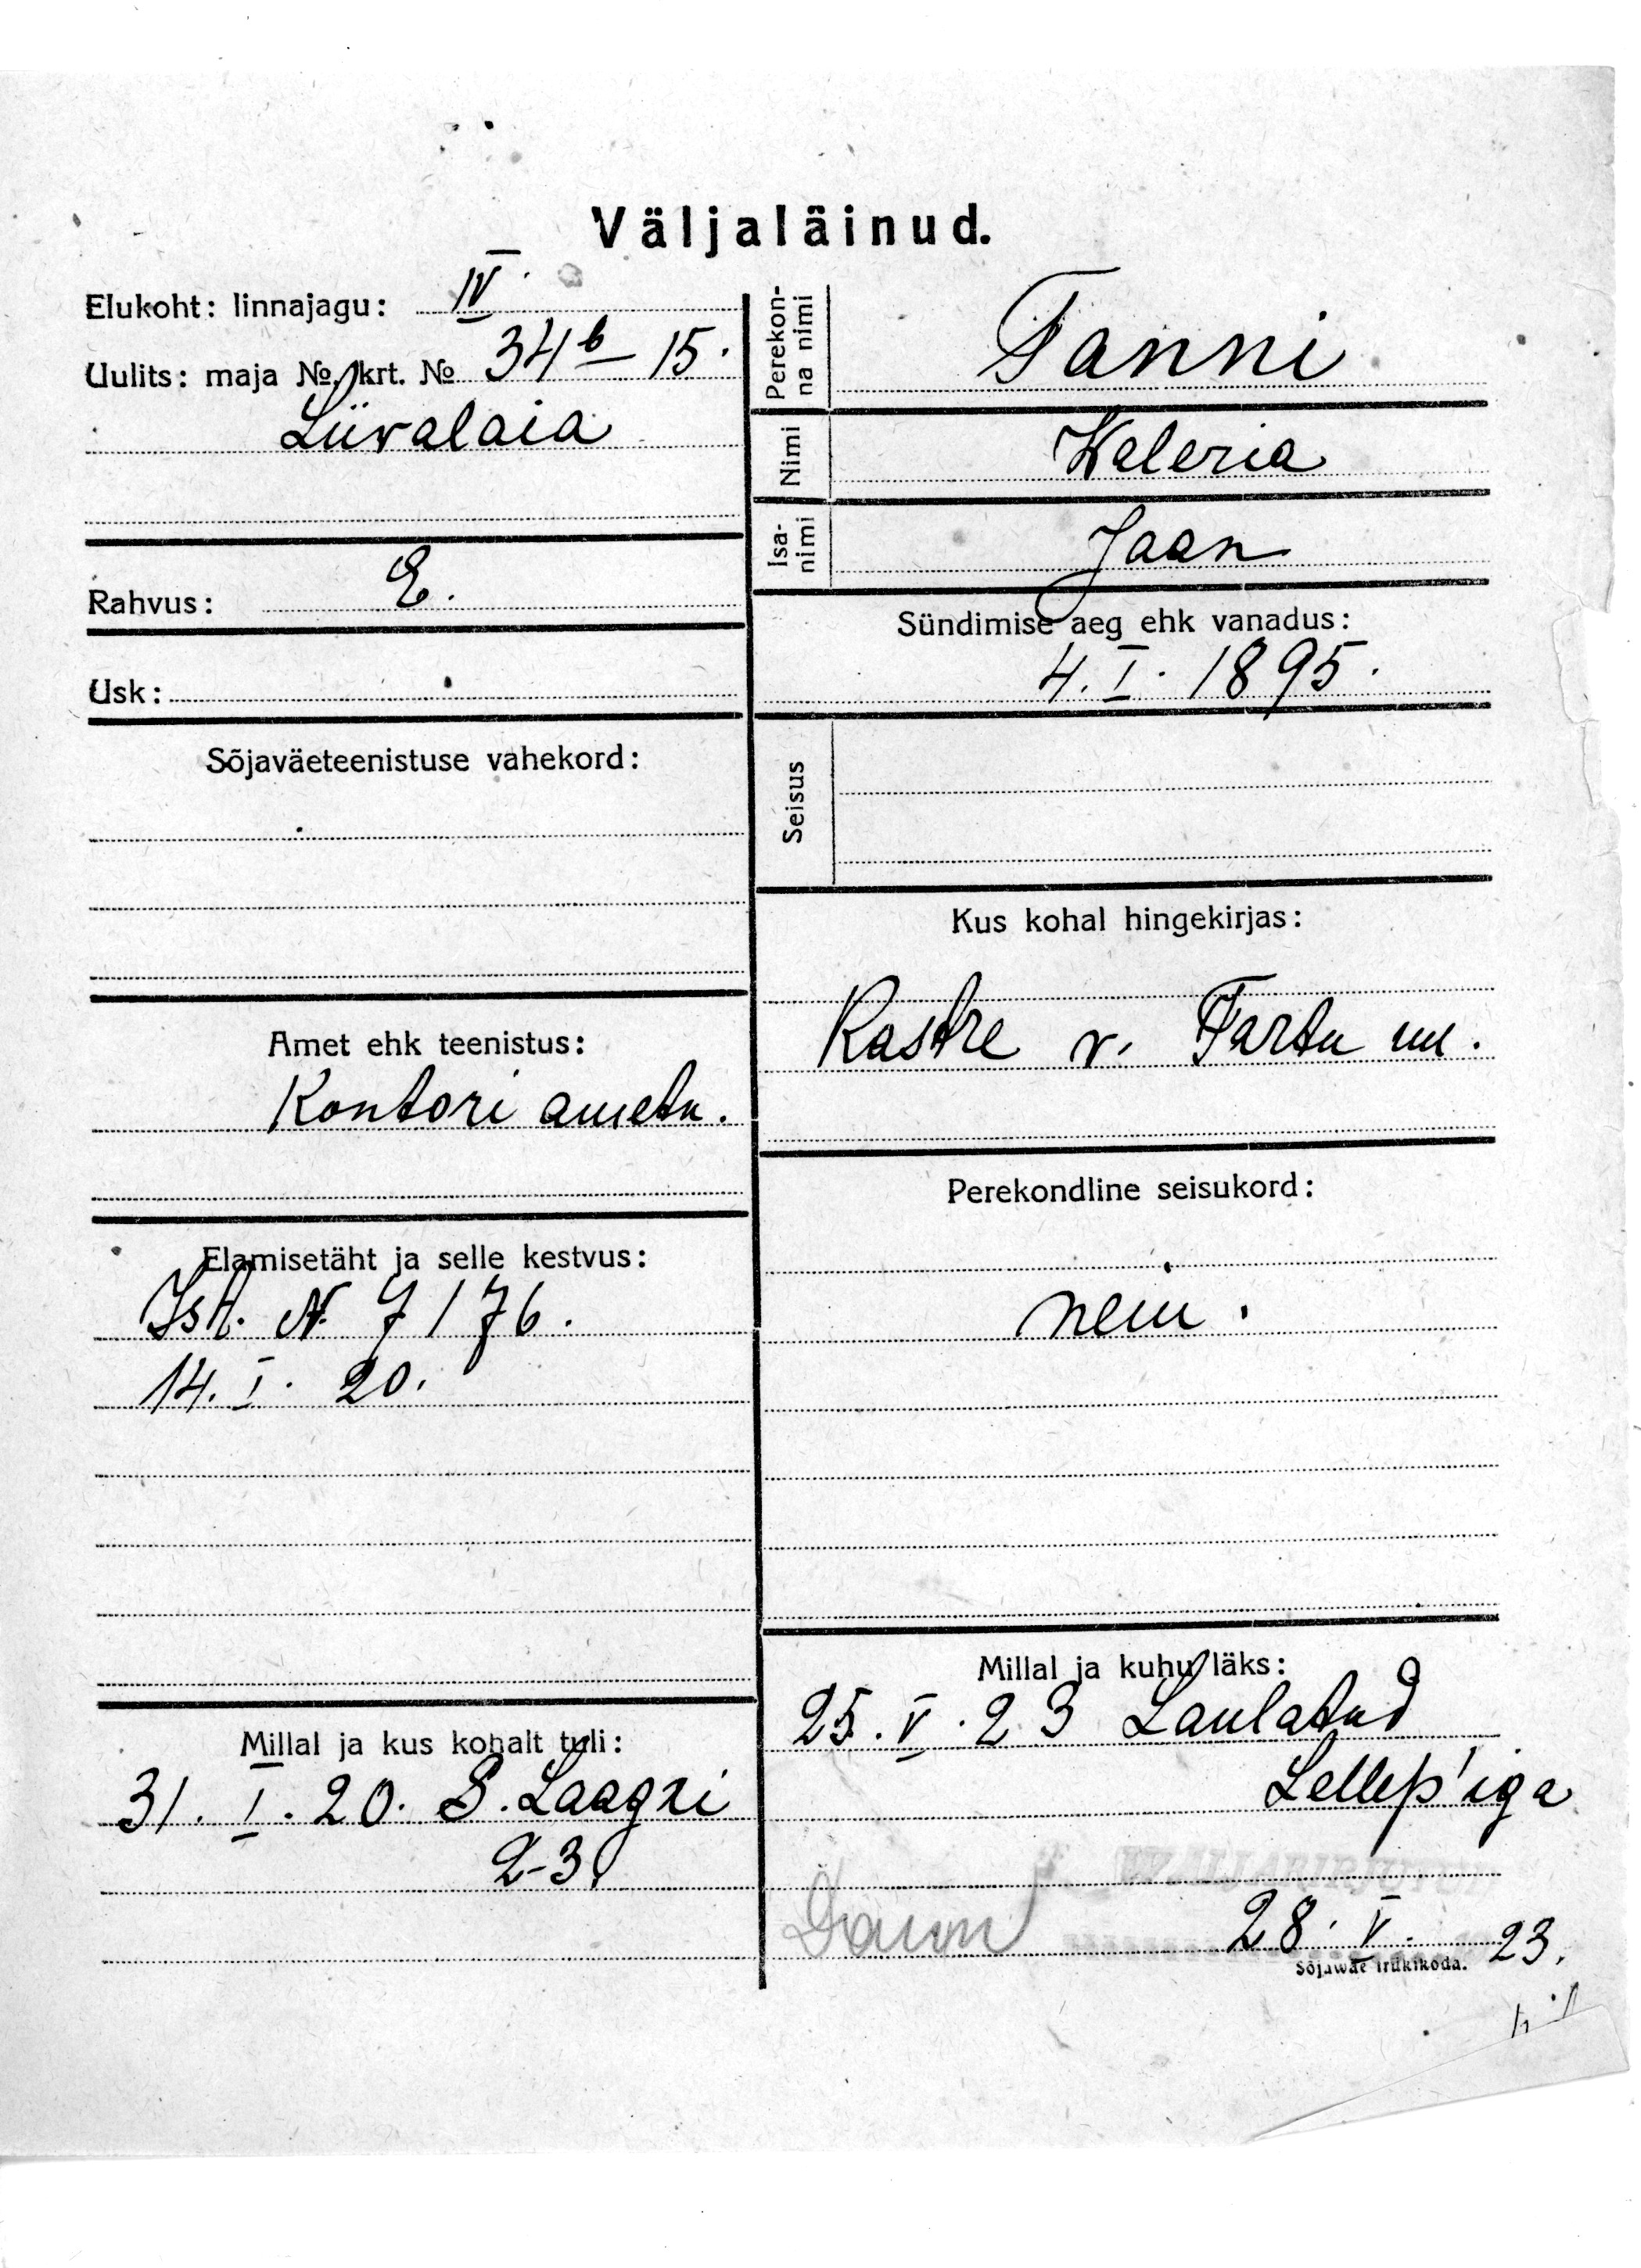 Väljaläinud.
Elukoht: linnajagu: IV
Uulits: maja № krt. № 34b – 15.
Liivalaia
Rahvus: E.
Usk:
Sõjaväeteenistuse vahekord:
Amet ehk teenistus:
Kontori ametn.
Elamisetäht ja selle kestvus:
Ist. N 7176.
14. I. 20.
Millal ja kus kohalt tuli:
31. I. 20. S. Laagri
2-3.
Perekon-
na nimi
Tanni
Nimi
Waleria
Isa-
nimi
Jaan
Sündimise aeg ehk vanadus:
4. I. 1895.
Seisus
Kus kohal hingekirjas:
Kastre v. Tartu m.
Perekondline seisukord:
neiu.
Millal ja kuhu läks:
25. V. 23 Laulatud
Lellep'iga
28. V. 23.
Sõjawäe trükikoda.